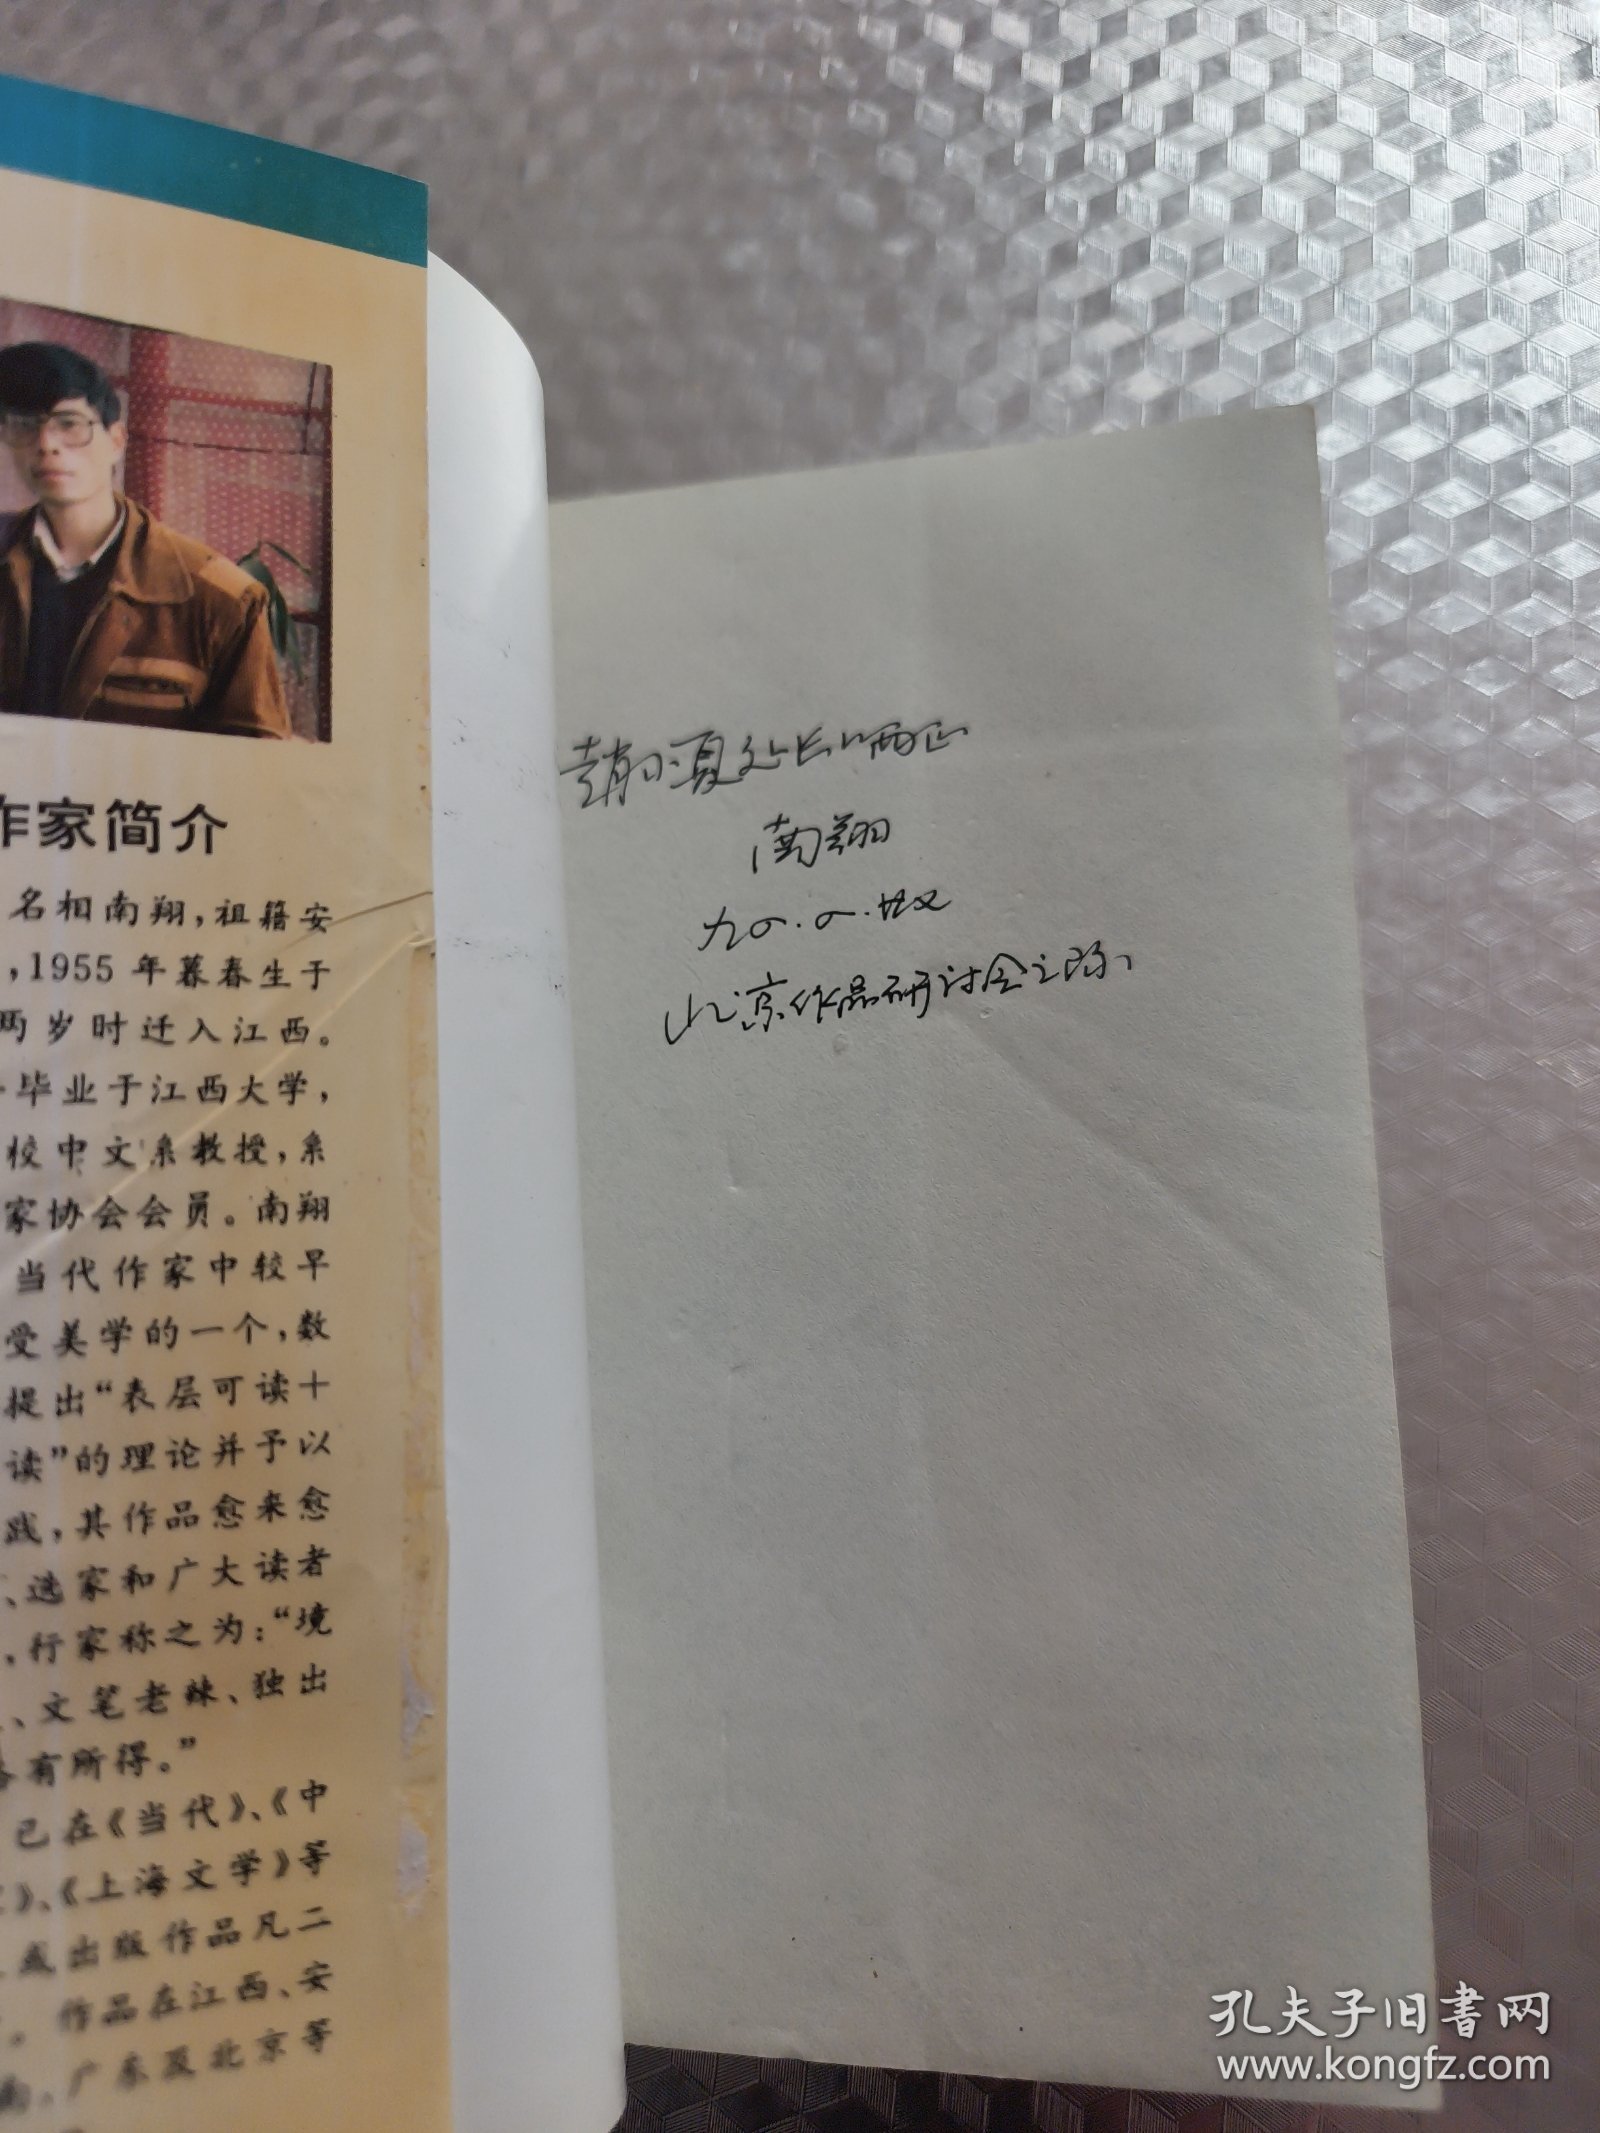 作家简介
名相南翔，祖籍安
，1955年暮春生于
两岁时迁入江西。
毕业于江西大学，
校中文系教授，系
家协会会员。南翔
当代作家中较早
受美学的一个，数
提出“表层可读十
读”的理论并予以
践，其作品愈来愈
、选家和广大读者
，行家称之为：“境
、文笔老辣、独出
各有所得。”
已在《当代》、《中
》、《上海文学》等
或出版作品凡二
。作品在江西、安
、广东及北京等
赵小夏处长哂正
南翔
北京作品研讨会之际、
孔夫子旧书网
www.kongfz.com